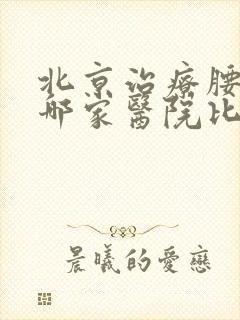 北京治療腰
哪家醫院比
晨曦的愛戀